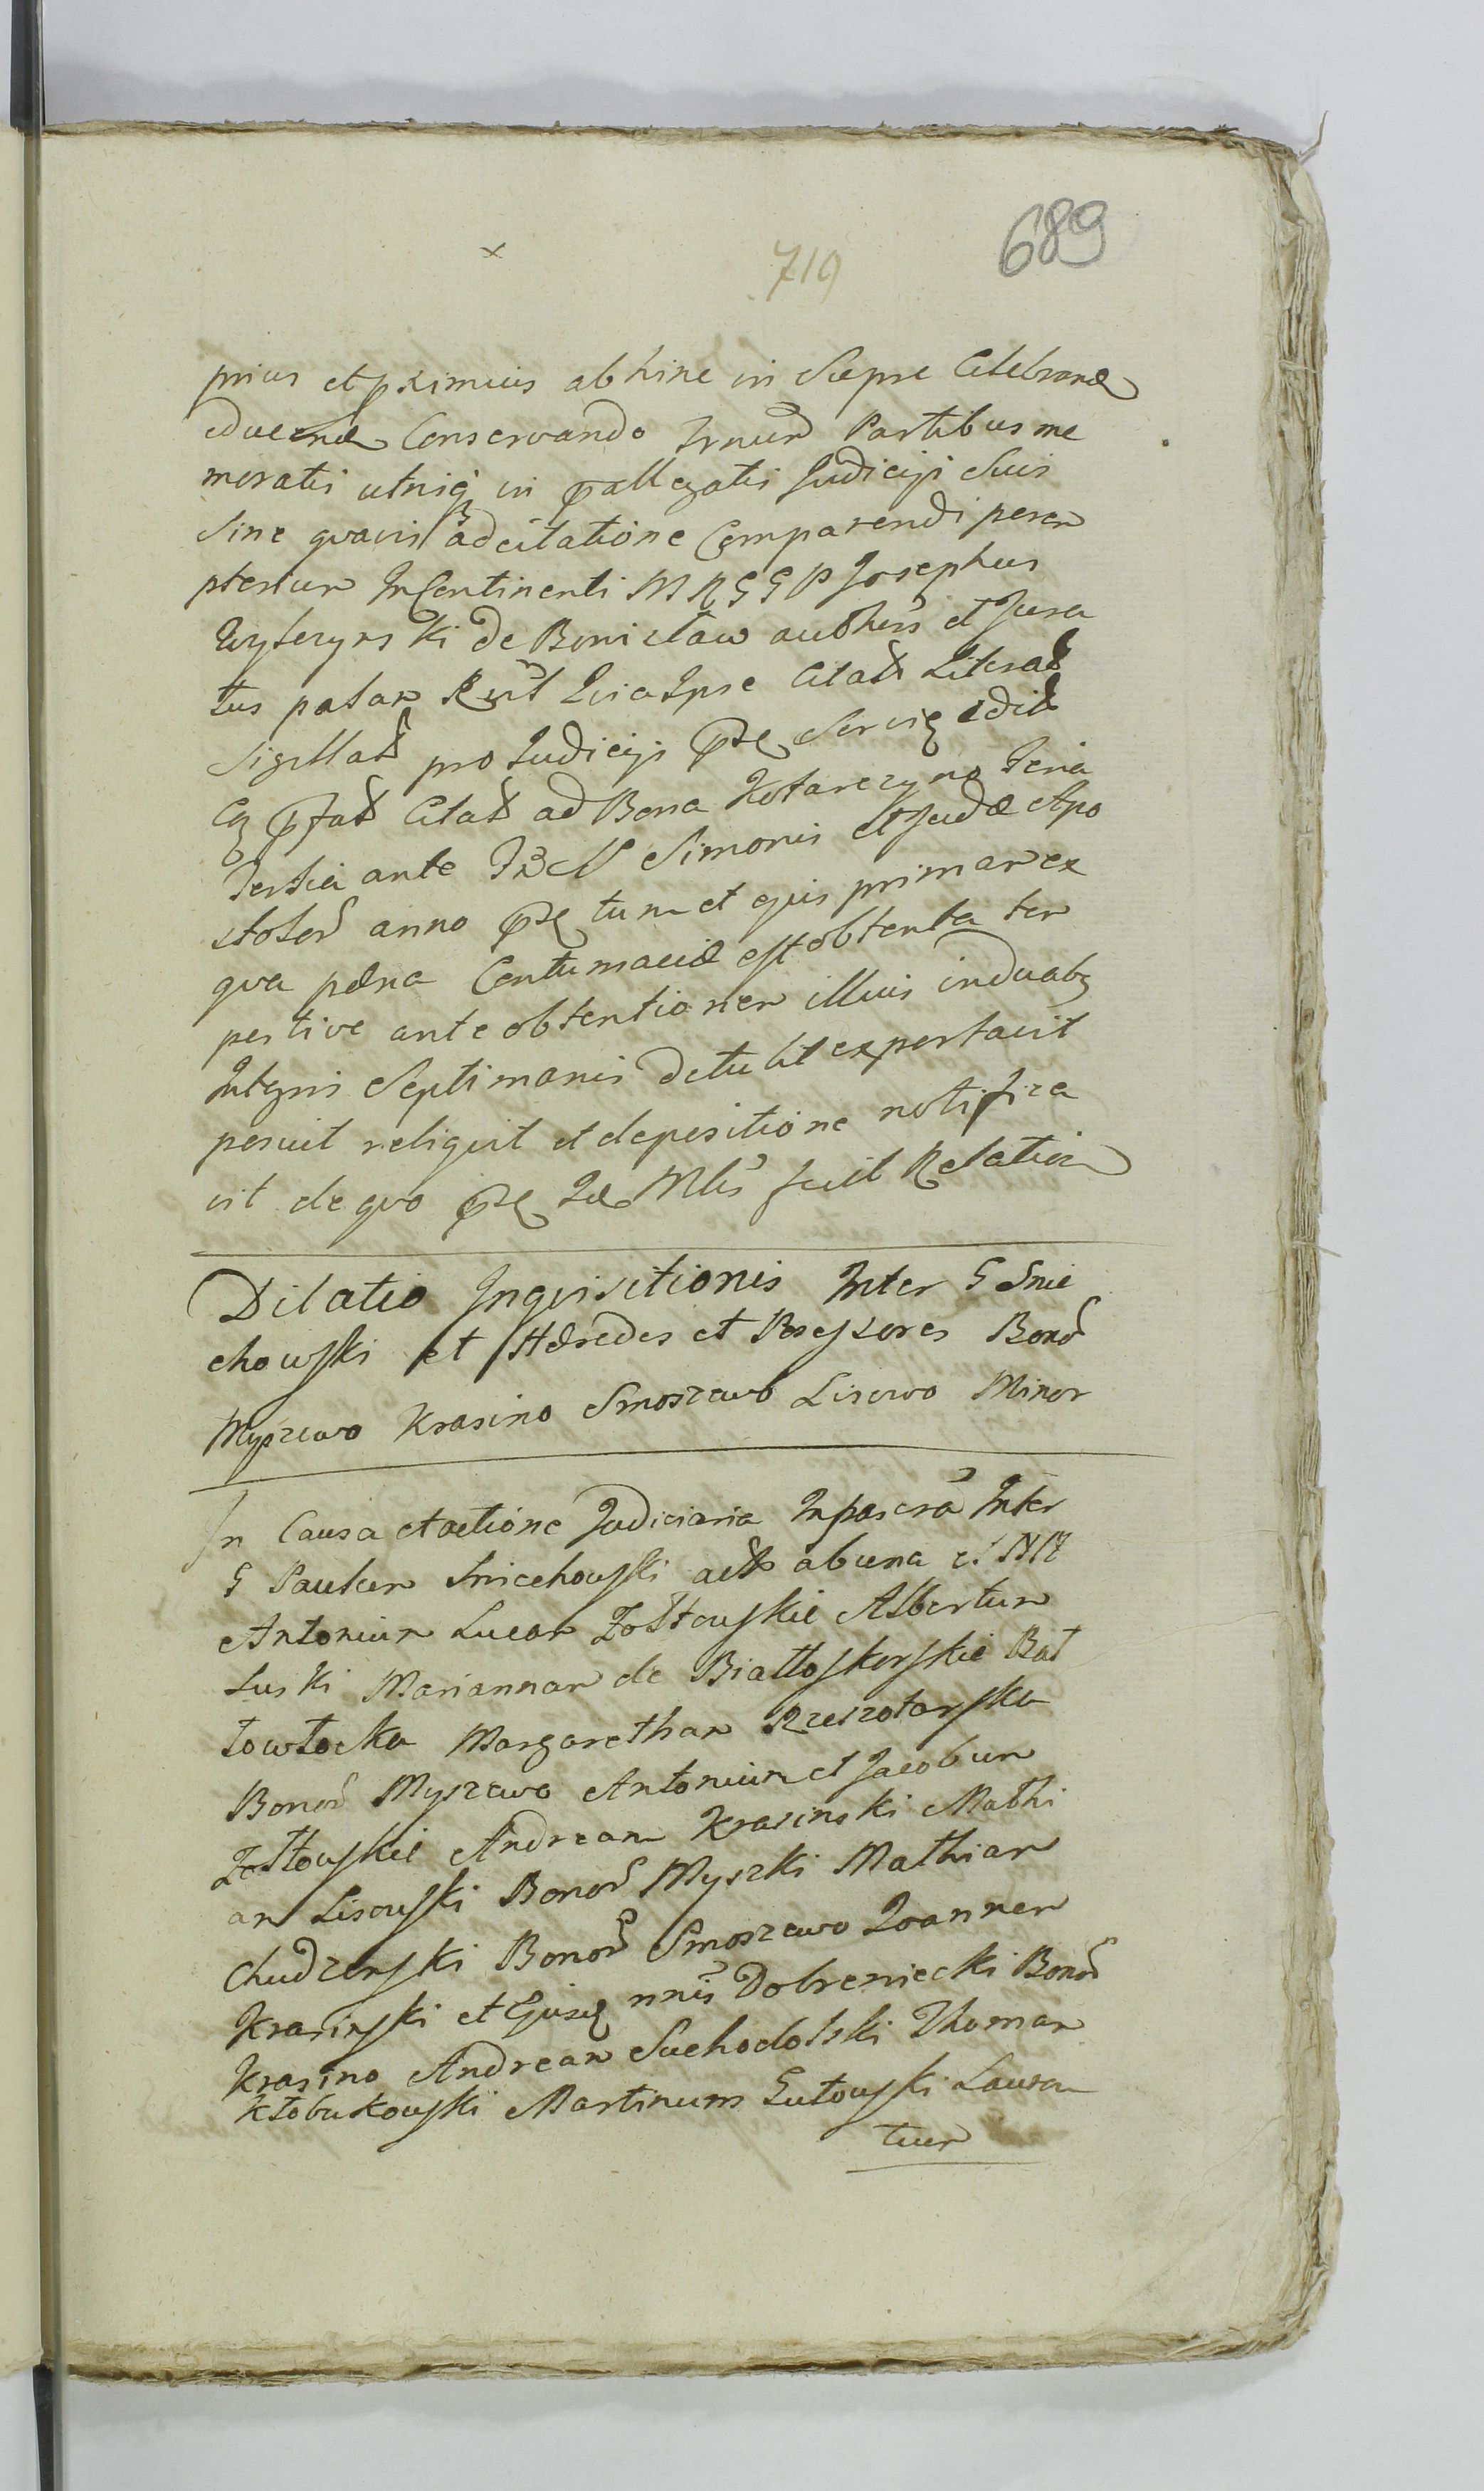 719 689
prius et pximius abhinc in Sepse Celebrand
advend Conservando Trnum Partibus me
moratis utrisq in pallegatis Judicijs Suis
Sine quavis adcitatione Comparendi perem
pterium In Continenti M R G G P Josephus
de Bonisław authens et Jura
tus patam Quia Ipse Citat Literat
Sigillat pro Judicijs Servis edit
Cq Citat ad Bona Kotarczyno Feria
Tertia ante Simonis et Judæ Apo
stolor anno tum et ejus primar ex
qva pæna Contumaciæ est obtenta tem
pestive ante obtentionem illius in duabq
Integris Septimanis detulit exportavit
posuit reliqvit et depositione notifica
vit de qvo Mlis fecit Relation
Dilatio Inqvisitionis Inter G Snie
chowski et Hæredes et Possessores Bonor
Myszewo Krasino Smoszewo Lisowo Minor
In Causa et actione Judiciaria Inter
G Paulum Sniechowski act ab una et
Antonium Lucam Zołtowskie Albertum
Luski Mariannam de Białłoskorskie Bał
towłocka Margaretham Rzeszotarska
Bonor Myszewo Antonium et Jacobum
Zołtowskie Andream Krasinski Mathi
am Lisowski Bonor Myszki Mathiam
Chudzynski Bonor Smoszewo Joannem
Krasinski et Ejusq nnis Dobreniecki Bonor
Krasino Andream Suchodolski Thomam
Kłobukowski Martinum Gutowski Lauren
tium